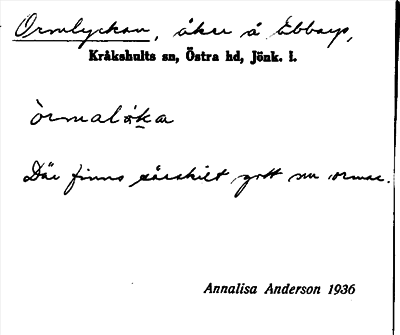 Ormlyckan, åker å Ebbarp,
Kråkshults sn, Östra hd, Jönk. l.
Där finns särskilt gott om ormar.
Annalisa Anderson 1936